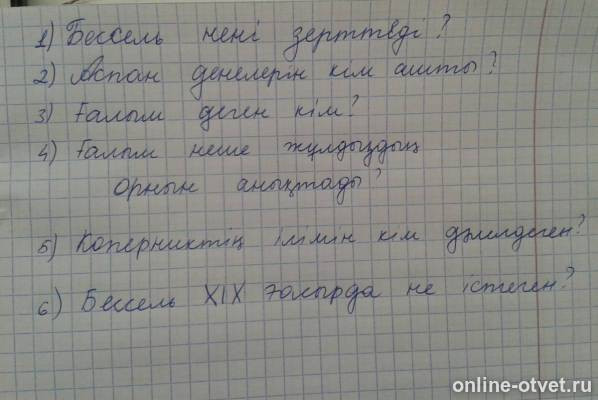 1) Бессель нені зерттеді?
2) Аспан денелерін кім ашты?
3) Ғалым деген кім?
4) Ғалым неше жұлдыздың
орнын анықтады?
5) Коперниктің ілімін кім дәлелдеген?
6) Бессель XIX ғасырда не істеген?
online-otvet.ru